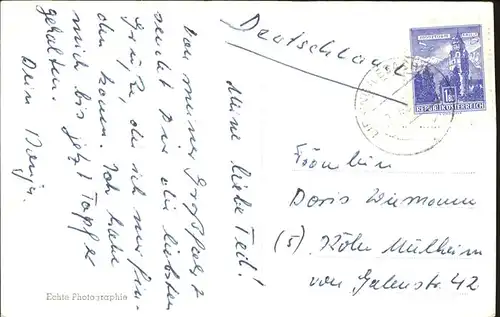 Deutschland
Meine liebe Teil!
Von meiner Großfahrt
sendet Dir die liebsten
Grüße, die ich nur fin-
den kann. Ich habe
mich bis jetzt tapfer
gehalten.
Dein
REPUBLIK ÖSTERREICH
Fräulein
Doris Wiemann
(5) Köln Mülheim
von Galenstr. 42
Echte Photographie